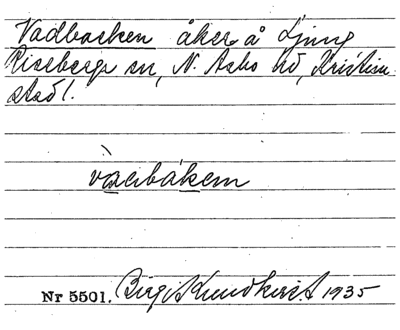 Vadbacken åker å Ljung
Riseberga sn, N. Åsbo hd, Kristian-
stads l.
Nr 5501. Birgit Lundkvist 1935